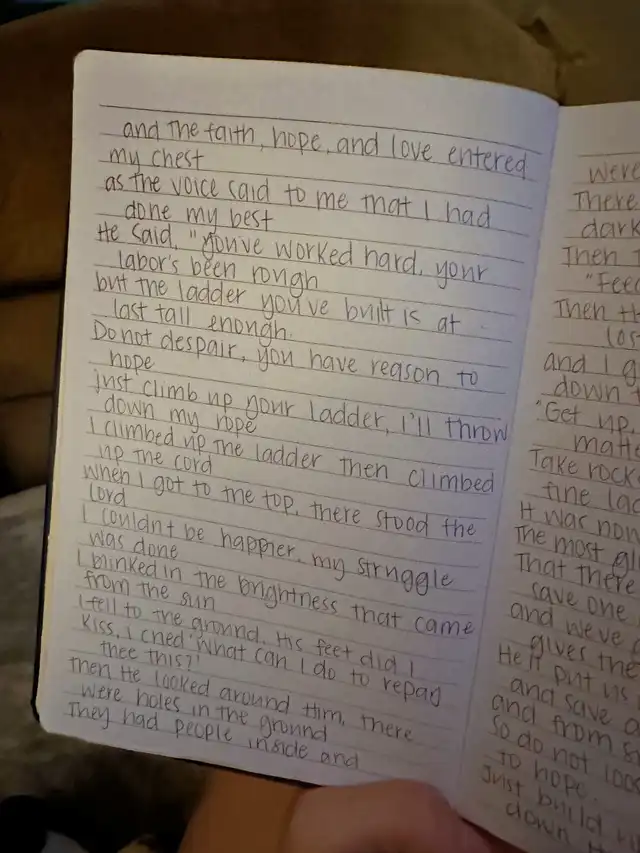 and the faith, hope, and love entered
my chest
as the voice said to me that I had
done my best
He said, "you've worked hard, your
labor's been rough
but the ladder you've built is at
last tall enough.
Do not despair, you have reason to
hope
just climb up your ladder, i'll throw
down my rope
I climbed up the ladder then climbed
up the cord
When I got to the top, there stood the
lord
I couldn't be happier, my struggle
was done
I blinked in the brightness that came
from the sun
I fell to the ground, His feet did I
kiss, I cried 'What can I do to repay
thee this?'
Then He looked around Him, there
were holes in the ground
They had people inside and
were
There
dark
Then
"Feed
Then th
los
and I g
down t
"Get up,
matte
Take rock
fine lad
It was now
The most gl
That there
save one
and we've
gives the
He'll put us
and save
and from s
So do not loos
to hope.
Just build
down